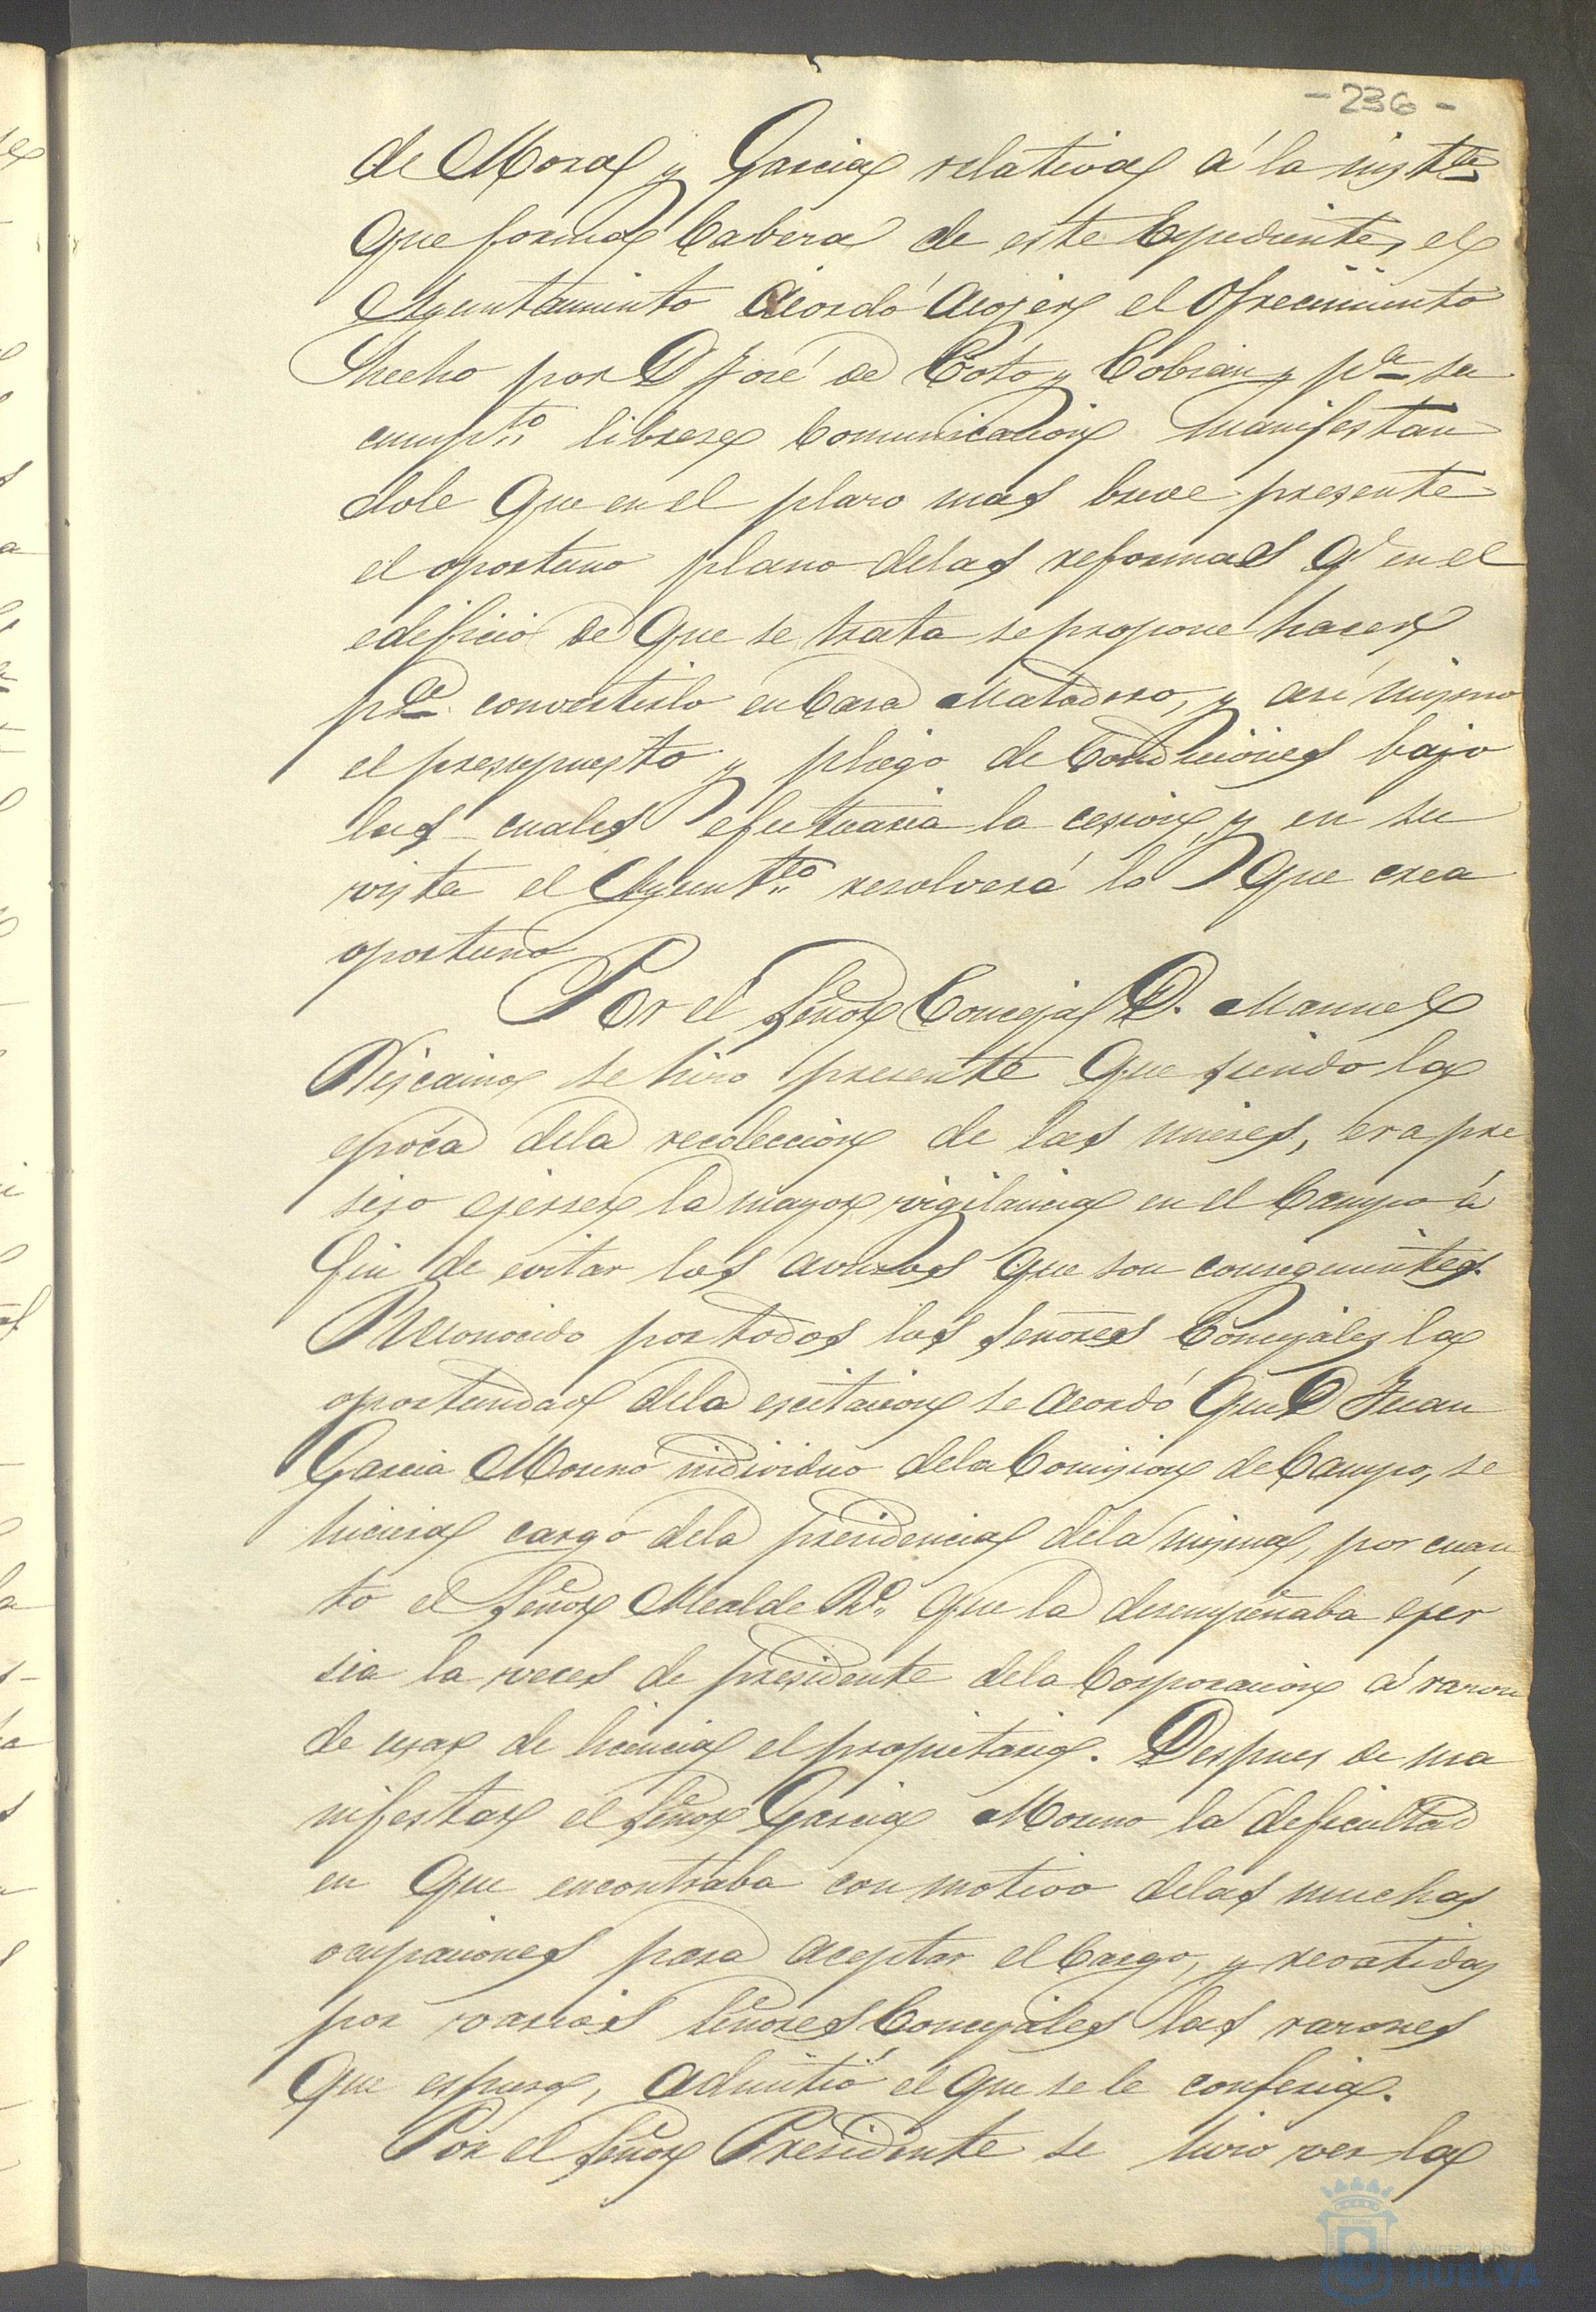 - 236 -
de Mora y Garcia relativa á la inst.ª
que forma Cabeza de este Expediente, el
Ayuntamiento acordó acojer el Ofrecimiento
hecho por D José de Coto y Cobian y p.ª su
cump.to librese Comunicacion manifestan
dole que en el plazo mas breve presente
el oportuno plano delas reformas q.e en el
edificio de que se trata se propone hacer
p.ª convertirlo en Casa Matadero, y asi mismo
el presupuesto y pliego de Condiciones bajo
las cuales efectuaria la cesion, y en su
vista el Ayunt.to resolverá lo que crea
oportuno
Por el Señor Concejal D. Manuel
Viscaino se hizo presente que siendo la
epoca dela recoleccion de las mieses, era pre
siso ejerser la mayor vigilancia en el Campo á
fin de evitar los avusos que son consiguientes.
Reconocido por todos los señores Concejales la
oportunidad dela escitacion se acordó que D Juan
Garcia Moreno individuo dela Comision de Campo, se
hiciera cargo dela presidencia dela misma, por cuan
to el Señor Alcalde 2.º que la desempeñaba ejer
sia la veces de presidente dela Corporacion á razon
de usar de licencia el propietario. Despues de ma
nifestar el Señor Garcia Moreno la deficultad
en que encontraba con motivo delas muchas
ocupaciones para aceptar el Cargo, y revatidas
por varios señores Concejales las razones
que espuso, admitió el que se le conferia.
Por el Señor Presidente se hizo ver la
AYUNTAMIENTO DE
HUELVA